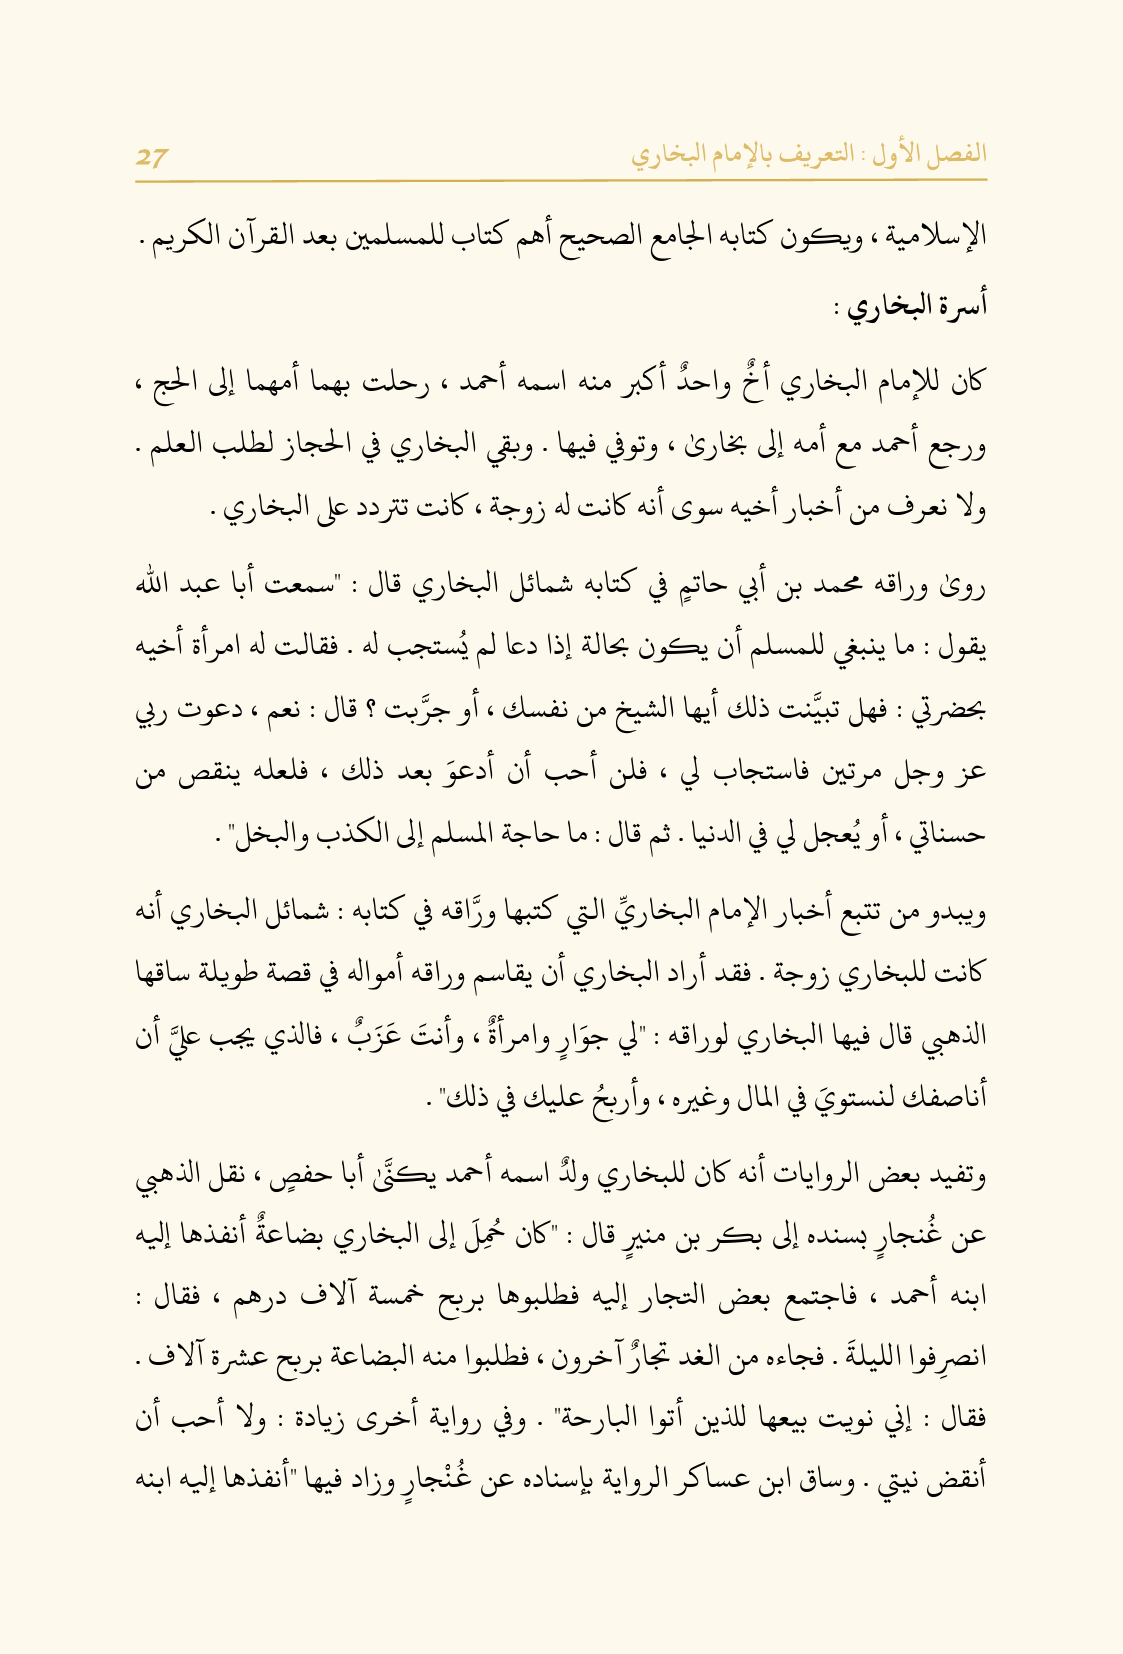 الفصل الأول : التعريف بالإمام البخاري 27
الإسلامية ، ويكون كتابه الجامع الصحيح أهم كتاب للمسلمين بعد القرآن الكريم .
أسرة البخاري :
كان للإمام البخاري أخٌ واحدٌ أكبر منه اسمه أحمد ، رحلت بهما أمهما إلى الحج ،
ورجع أحمد مع أمه إلى بخارىٰ ، وتوفي فيها . وبقي البخاري في الحجاز لطلب العلم .
ولا نعرف من أخبار أخيه سوى أنه كانت له زوجة ، كانت تتردد على البخاري .
روىٰ وراقه محمد بن أبي حاتمٍ في كتابه شمائل البخاري قال : "سمعت أبا عبد الله
يقول : ما ينبغي للمسلم أن يكون بحالة إذا دعا لم يُستجب له . فقالت له امرأة أخيه
بحضرتي : فهل تبيَّنت ذلك أيها الشيخ من نفسك ، أو جرَّبت ؟ قال : نعم ، دعوت ربي
عز وجل مرتين فاستجاب لي ، فلن أحب أن أدعوَ بعد ذلك ، فلعله ينقص من
حسناتي ، أو يُعجل لي في الدنيا . ثم قال : ما حاجة المسلم إلى الكذب والبخل" .
ويبدو من تتبع أخبار الإمام البخاريِّ التي كتبها ورَّاقه في كتابه : شمائل البخاري أنه
كانت للبخاري زوجة . فقد أراد البخاري أن يقاسم وراقه أمواله في قصة طويلة ساقها
الذهبي قال فيها البخاري لوراقه : "لي جوَارٍ وامرأةٌ ، وأنتَ عَزَبٌ ، فالذي يجب عليَّ أن
أناصفك لنستويَ في المال وغيره ، وأربحُ عليك في ذلك" .
وتفيد بعض الروايات أنه كان للبخاري ولدٌ اسمه أحمد يكنَّىٰ أبا حفصٍ ، نقل الذهبي
عن غُنجارٍ بسنده إلى بكر بن منيرٍ قال : "كان حُمِلَ إلى البخاري بضاعةٌ أنفذها إليه
ابنه أحمد ، فاجتمع بعض التجار إليه فطلبوها بربح خمسة آلاف درهم ، فقال :
انصرِفوا الليلةَ . فجاءه من الغد تجارٌ آخرون ، فطلبوا منه البضاعة بربح عشرة آلاف .
فقال : إني نويت بيعها للذين أتوا البارحة" . وفي رواية أخرى زيادة : ولا أحب أن
أنقض نيتي . وساق ابن عساكر الرواية بإسناده عن غُنْجارٍ وزاد فيها "أنفذها إليه ابنه